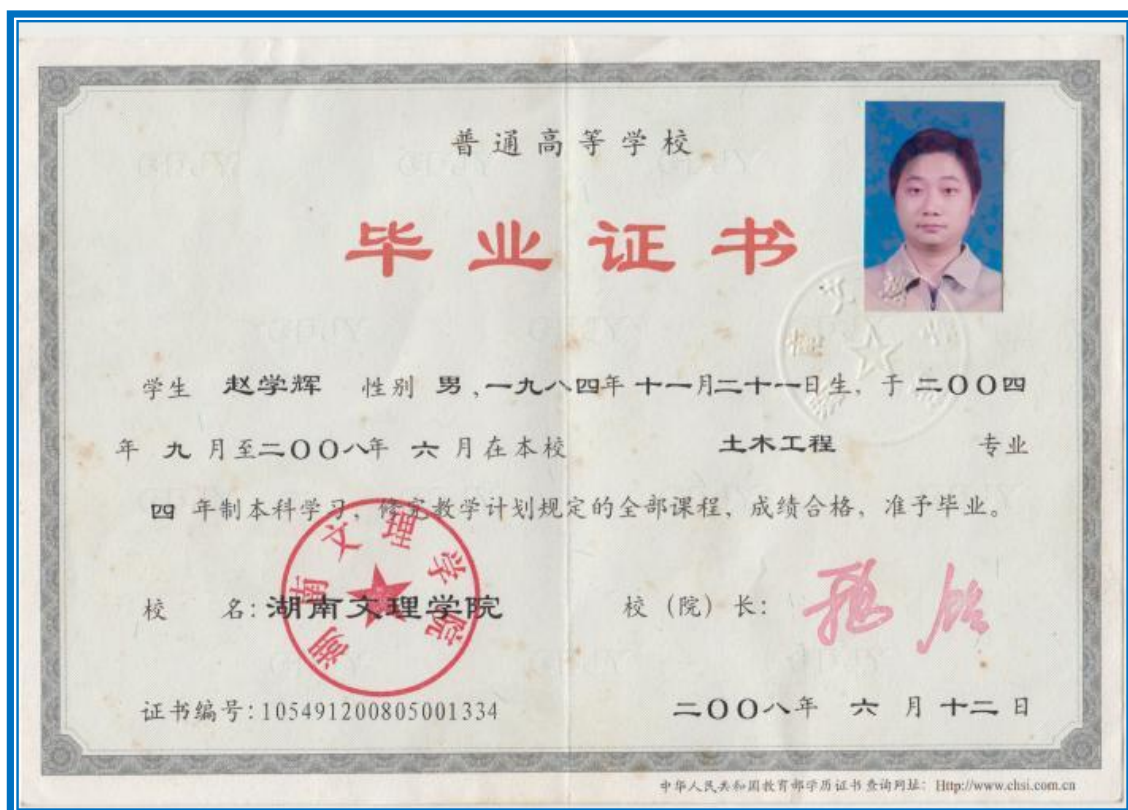 普通高等学校
毕业证书
学生 赵学辉 性别 男,一九八四年十一月二十一日生,于二〇〇四
年 九 月至二〇〇八年 六 月在本校 土木工程 专业
四 年制本科学习,修完教学计划规定的全部课程,成绩合格,准予毕业。
湖南文理学院
校 名:湖南文理学院 校(院)长:
证书编号:105491200805001334 二〇〇八年 六 月 十二 日
中华人民共和国教育部学历证书查询网址: Http://www.chsi.com.cn